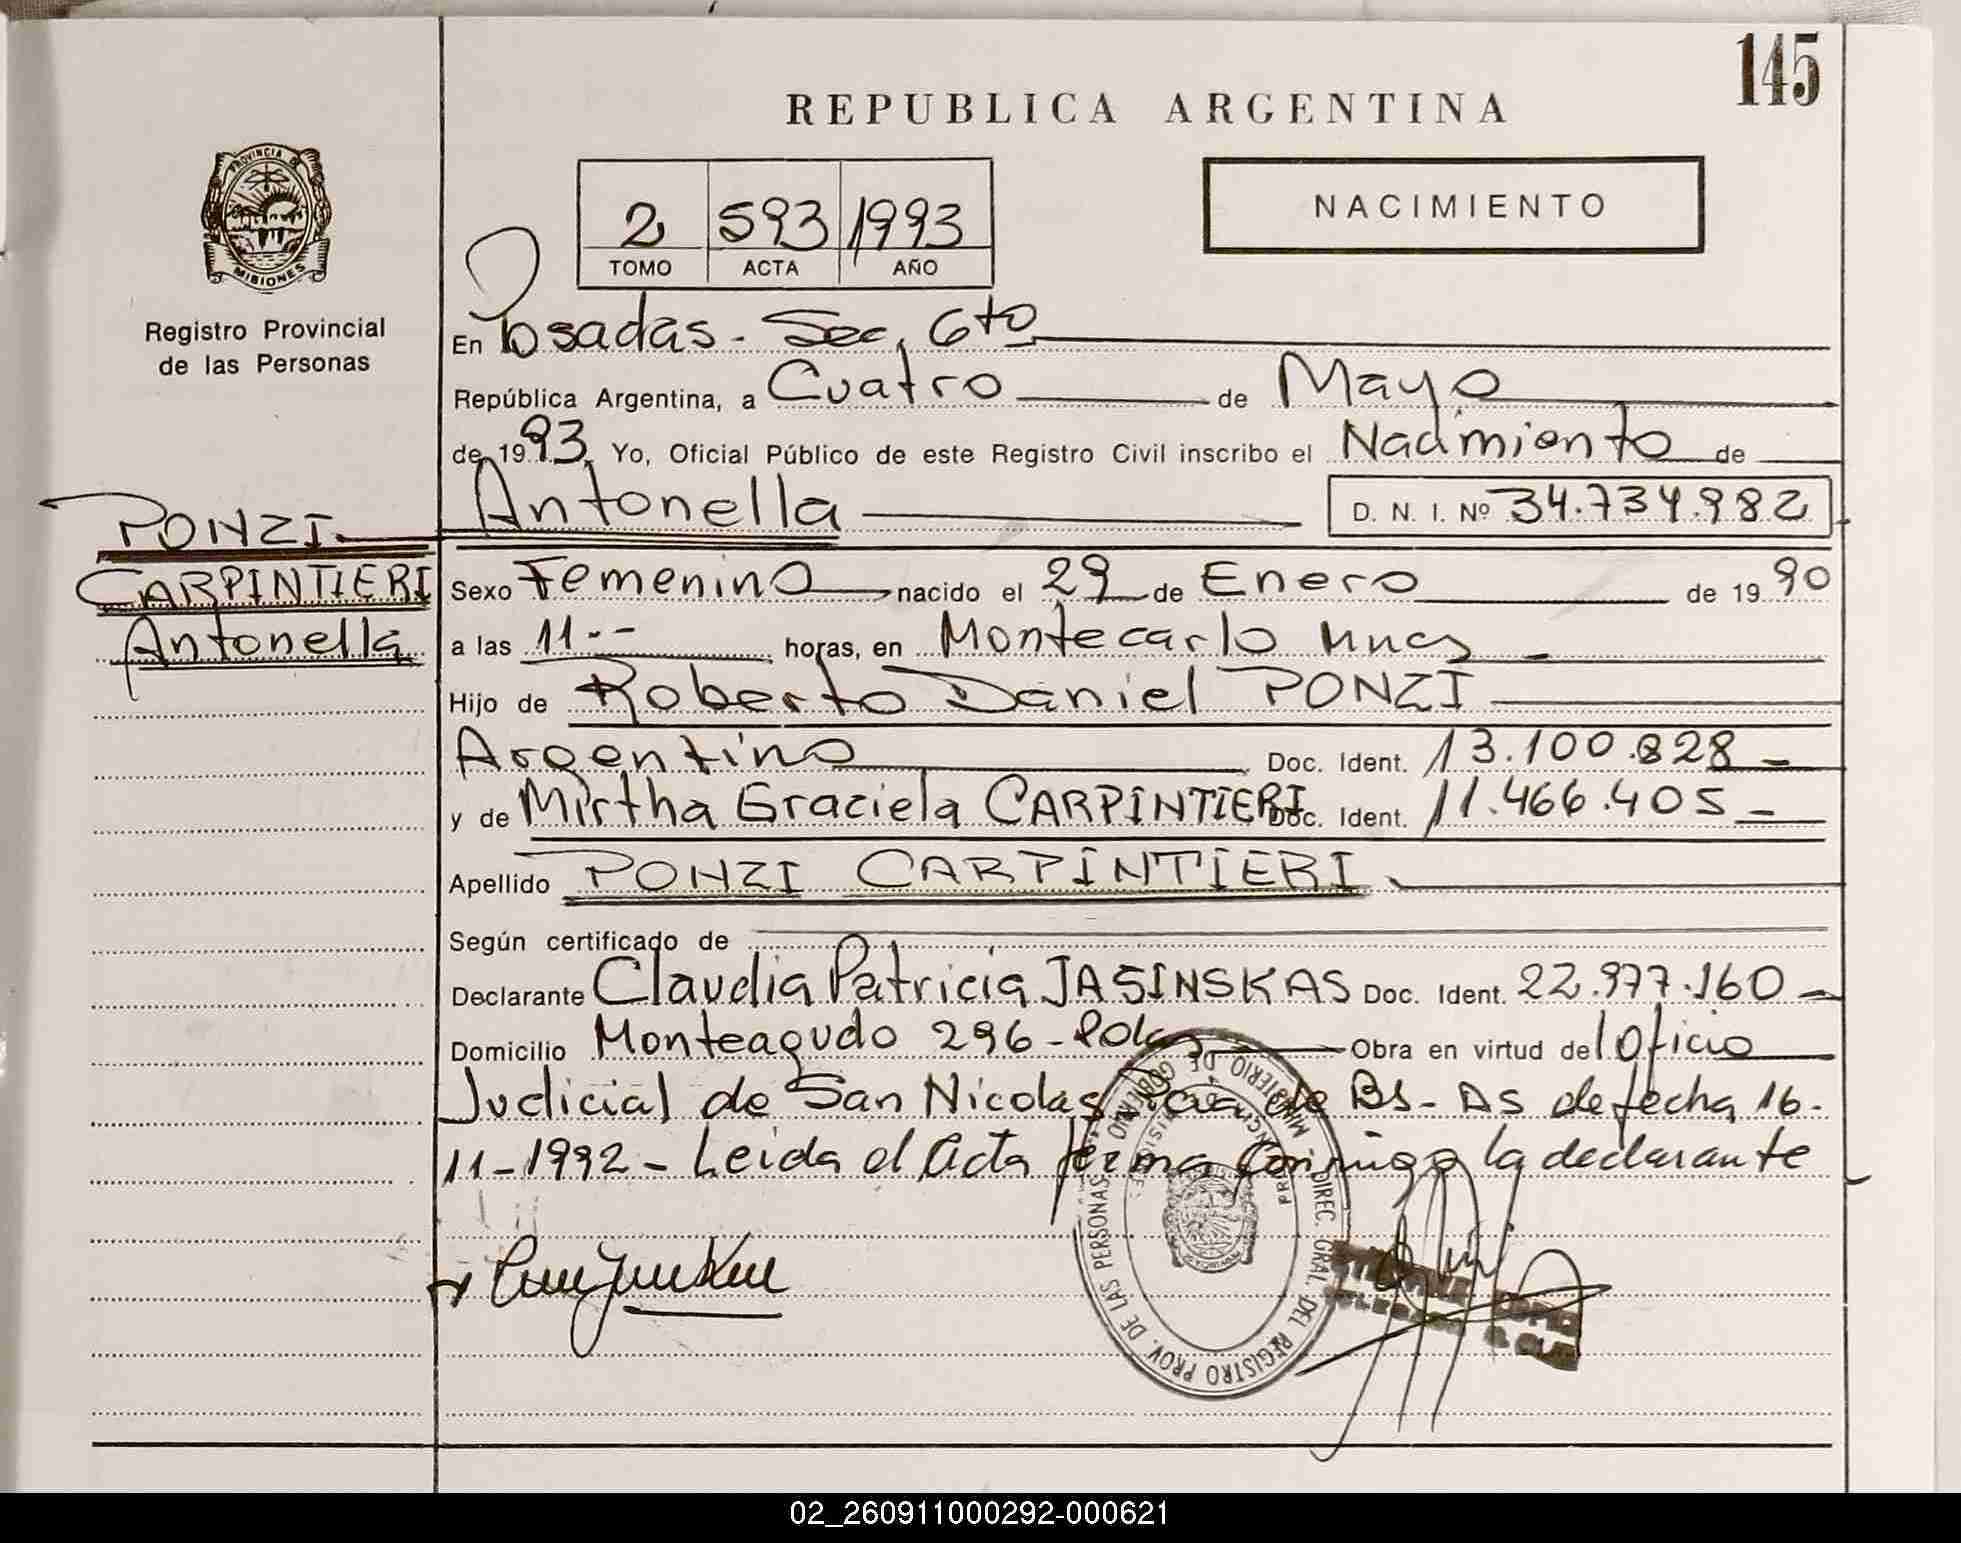 145
REPUBLICA ARGENTINA
NACIMIENTO
2 593 1993
TOMO ACTA AÑO
PROVINCIA DE MISIONES
Registro Provincial
de las Personas
En Posadas - Sec, 6to
República Argentina, a Cuatro de Mayo
de 1993. Yo, Oficial Público de este Registro Civil inscribo el Nacimiento de
Antonella D. N. I. Nº 34.734.982
PONZI
CARPINTIERI
Antonella
Sexo Femenino nacido el 29 de Enero de 1990
a las 11 -- horas, en Montecarlo Mnes
Hijo de Roberto Daniel PONZI
Argentino Doc. Ident. 13.100.828
y de Mirtha Graciela CARPINTIERI Doc. Ident. 11.466.405
Apellido PONZI CARPINTIERI
Según certificado de
Declarante Claudia Patricia JASINSKAS Doc. Ident. 22.977.160
Domicilio Monteagudo 296 - Obra en virtud del Oficio
Judicial de San Nicolas de Bs - As de fecha 16-
11-1992 - Leida el Acta firma conmigo la declarante
MINISTERIO DE GOBIERNO
DIREC. GRAL. DEL REGISTRO PROV. DE LAS PERSONAS
02_260911000292-000621